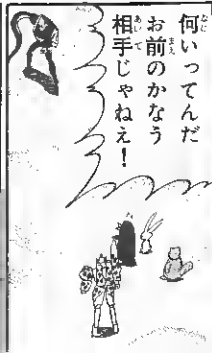 何いってんだ
お前のかなう
相手じゃねえ!